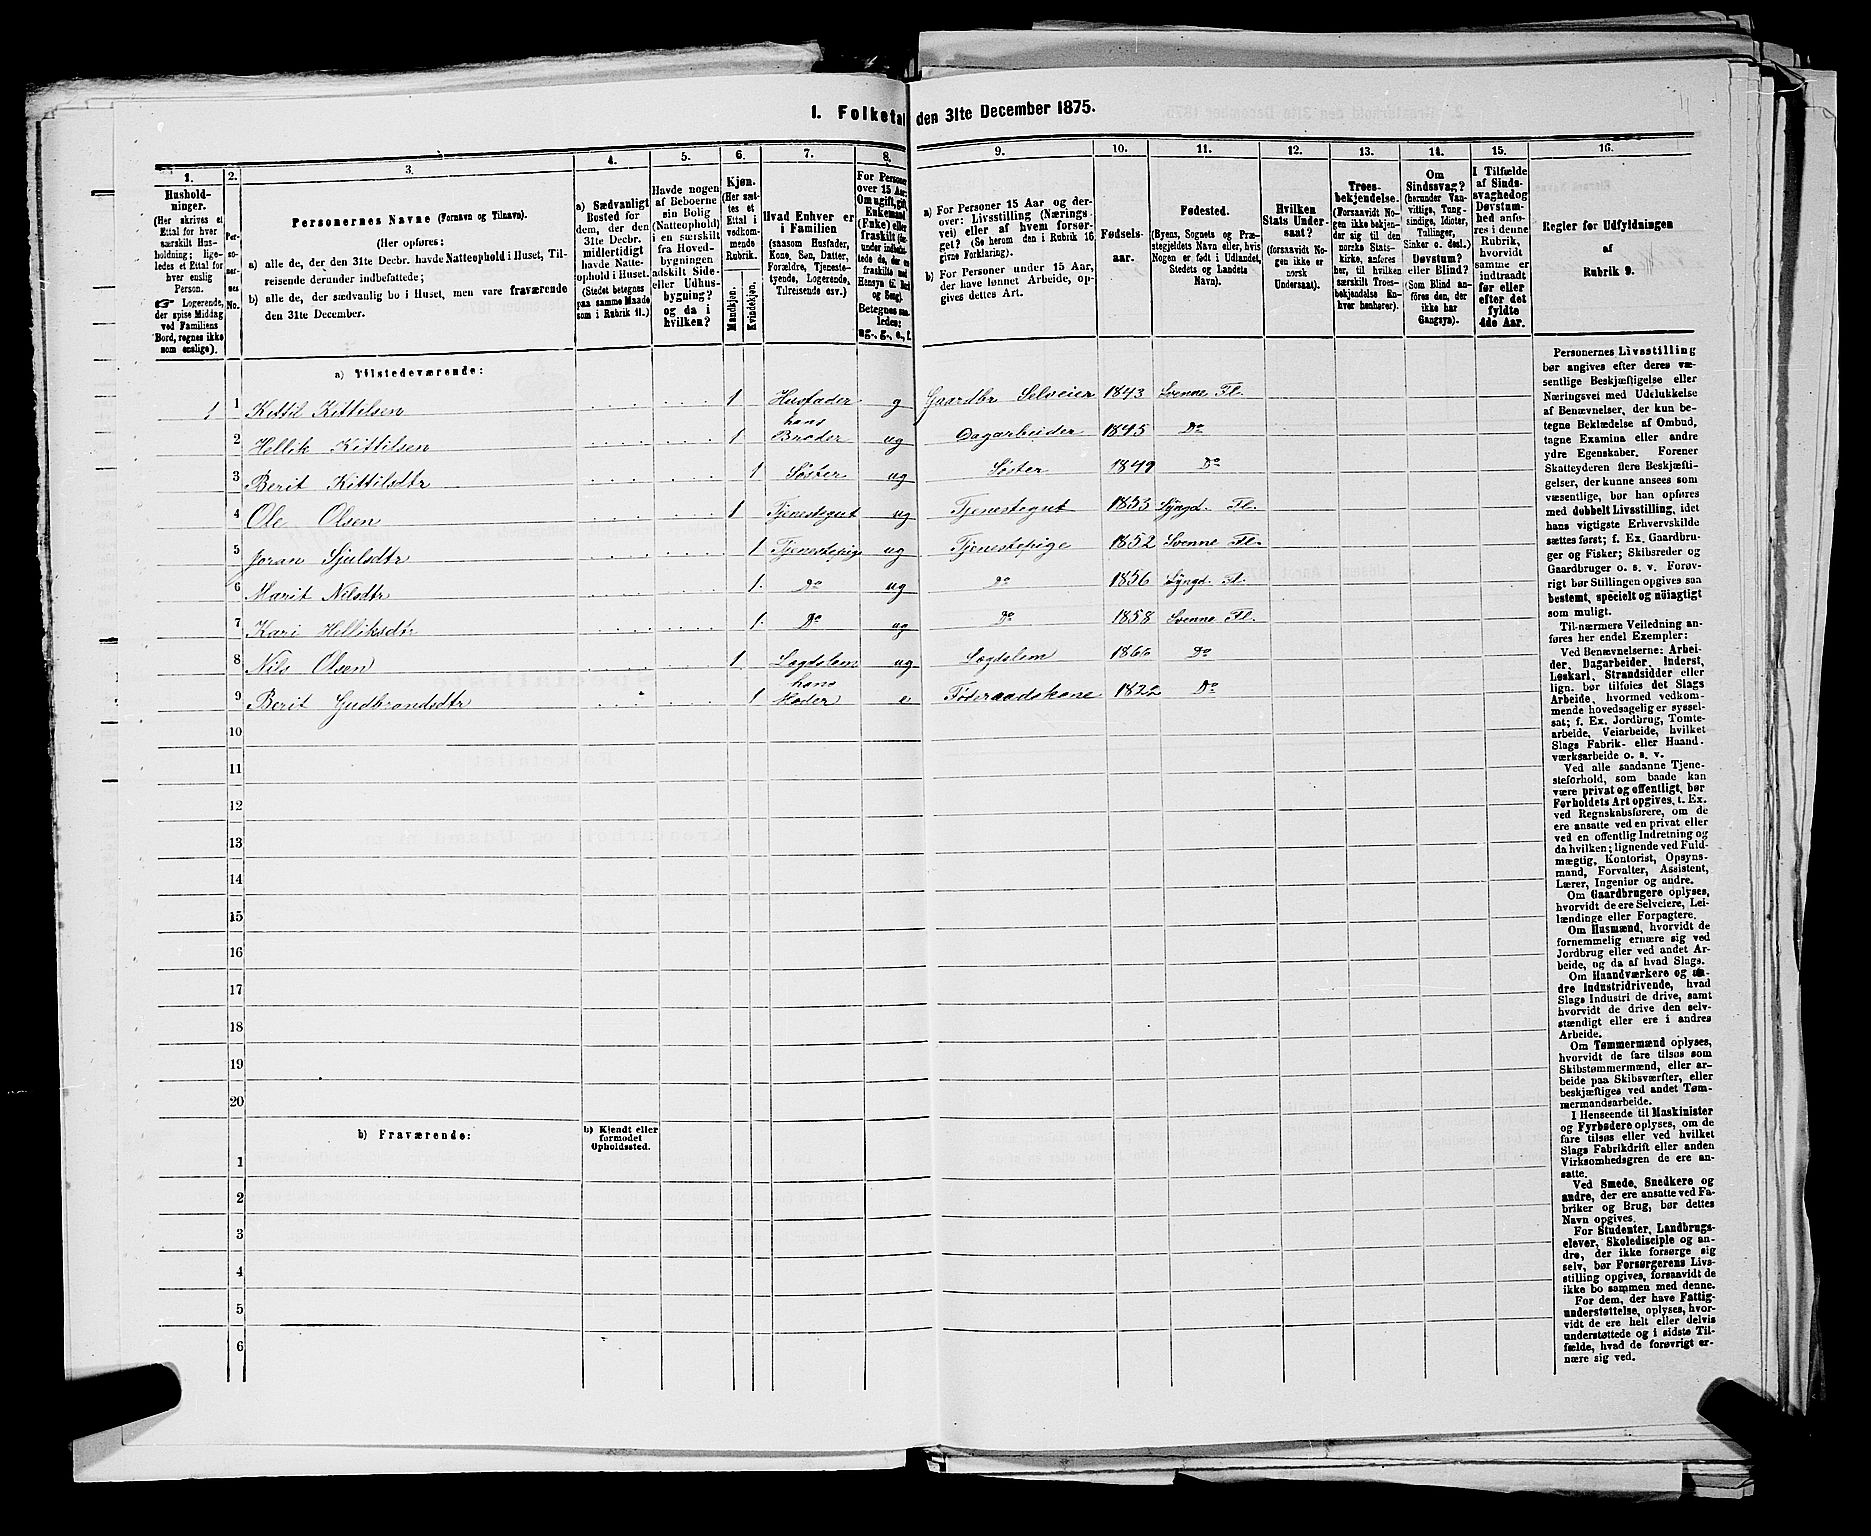 I. Folketal den 31te December 1875.
1.
Hushold-
ninger.
(Her skrives et
Ettal for hver
særskilt Hus-
holdning; lige-
ledes et Ettal for
hver enslig
Person.
☞ Logerende,
der spise Middag
ved Familiens
Bord, regnes ikke
som enslige).
2.
Per-
so-
ner-
nes
No.
3.
Personernes Navne (Fornavn og Tilnavn).
(Her opføres:
a) alle de, der den 31te Decbr. havde Natteophold i Huset, Til-
reisende derunder indbefattede;
b) alle de, der sædvanlig bo i Huset, men vare fraværende
den 31te December.
4.
a) Sædvanligt
Bosted for
dem, der den
31te Decbr.
midlertidigt
havde Natte-
ophold i Huset.
(Stedet betegnes
paa samme Maade
som i Rubrik 11.)
5.
Havde nogen
af Beboerne
sin Bolig
(Natteophold)
i en særskilt
fra Hoved-
bygningen
adskilt Side-
eller Udhus-
bygning?
og da i
hvilken?
6.
Kjøn.
(Her sæt-
tes et
Ettal i
vedkom-
mende
Rubrik.
Mandkjøn.
Kvindekjøn.
7.
Hvad Enhver er
i Familien
(saasom Husfader,
Kone, Søn, Datter,
Forældre, Tjeneste-
tyende, Logerende,
Tilreisende osv.)
8.
For Personer
over 15 Aar:
Om ugift, gift,
Enkemand
(Enke) eller
fraskilt
Betegnes saa-
ledes:
ug., g., e., f.
9.
a) For Personer 15 Aar og der-
over: Livsstilling (Nærings-
vei) eller af hvem forsør-
get? (Se herom den i Rubrik 16
givne Forklaring).
b) For Personer under 15 Aar,
der have lønnet Arbeide, op-
gives dettes Art.
10.
Fødsels-
aar.
11.
Fødested.
(Byens, Sognets og Præ-
stegjeldets Navn eller, hvis
Nogen er født i Udlandet,
Stedets og Landets
Navn).
12.
Hvilken
Stats Under-
saat?
(forsaavidt No-
gen ikke er
norsk
Undersaat).
13.
Troes-
bekjendelse.
(Forsaavidt No-
gen ikke bekjen-
der sig til den
norske Stats-
kirke, anføres
her, til hvilken
særskilt Troes-
bekjendelse En-
hver henhører).
14.
Om
Sindssvag?
(herunder Van-
vittige, Tung-
sindige, Idioter,
Tullinger,
Sinker o. desl.)
Døvstum?
eller Blind?
(Som Blind an-
føres den, der
ikke har
Gangsyn).
15.
I Tilfælde
af Sinds-
svaghed og
Døvstum-
hed anfø-
res i denne
Rubrik,
hvorvidt
samme er
indtraadt
før eller
efter det
fyldte
4de Aar.
16.
Regler for Udfyldningen
af
Rubrik 9.
a) Tilstedeværende:
1 1 Kittil Kittilsen 1 Husfader g Gaardbr Selveier 1843 Svenne Fl.
2 Hellik Kittilsen 1 hans Broder ug Dagarbeider 1845 Do
3 Berit Kittilsdtr 1 Søster ug Søster 1849 Do
4 Ole Olsen 1 Tjenestegut ug Tjenestegut 1853 Lyngd. Fl.
5 Joran Sjulsdtr 1 Tjenestepige ug Tjenestepige 1852 Svenne Fl.
6 Marit Nilsdtr 1 Do ug Do 1856 Lyngd. Fl.
7 Kari Helliksdtr 1 Do ug Do 1858 Svenne Fl.
8 Nils Olsen 1 Lægdslem ug Lægdslem 1866 Do
9 Berit Gudbrandsdtr 1 hans Moder e Føderaadskone 1822 Do
10
11
12
13
14
15
16
17
18
19
20
b) Fraværende:
b) Kjendt eller
formodet
Opholdssted.
1
2
3
4
5
6
Personernes Livsstilling
bør angives efter deres væ-
sentlige Beskjæftigelse eller
Næringsvei med Udelukkelse
af Benævnelser, der kun be-
tegne Beklædelse af Ombud,
tagne Examina eller andre
ydre Egenskaber. Forener
Skatteyderen flere Beskjæfti-
gelser, der kunne ansees som
væsentlige, bør han opføres
med dobbelt Livsstilling, idet
hans vigtigste Erhvervskilde
sættes først; f. Ex. Gaardbru-
ger og Fisker; Skibsreder og
Gaardbruger o. s. v. Forøv-
rigt bør Stillingen opgives saa
bestemt, specielt og nøiagtigt
som muligt.
Til nærmere Veiledning an-
føres her endel Exempler:
Ved Benævnelserne: Arbei-
der, Dagarbeider, Inderst,
Løskarl, Strandsidder eller
lign. bør tilføies det Slags
Arbeide, hvormed vedkom-
mende hovedsagelig er syssel-
sat; f. Ex. Jordbrug, Tomte-
arbeide, Veiarbeide, hvilket
Slags Fabrik- eller Haand-
værksarbeide o. s. v.
Ved alle saadanne Tjene-
steforhold, som baade kan
være privat og offentligt, bør
Forholdets Art opgives, t. Ex.
ved Regnskabsførere, om de
ere ansatte ved en privat eller
ved en offentlig Indretning og
da hvilken; lignende ved Fuld-
mægtig, Kontorist, Opsyns-
mand, Forvalter, Assistent,
Lærer, Ingeniør og andre.
Om Gaardbrugere oplyses,
hvorvidt de ere Selveiere, Lei-
lændinge eller Forpagtere.
Om Husmænd, hvorvidt de
fornemmelig ernære sig ved
Jordbrug eller ved andet Ar-
beide, og da af hvad Slags.
Om Haandværkere og an-
dre Industridrivende, hvad
Slags Industri de drive, samt
hvorvidt de drive den selv-
stændigt eller ere i andres
Arbeide.
Om Tømmermænd oplyses,
hvorvidt de fare tilsøs som
Skibstømmermænd, eller ar-
beide paa Skibsværfter, eller
beskjæftiges ved andet Tøm-
mermandsarbeide.
I Henseende til Maskinister
og Fyrbødere oplyses, om de
fare tilsøs eller ved hvilket
Slags Fabrikdrift eller anden
Virksomhedsgren de ere an-
satte.
Ved Smede, Snedkere og
andre, der ere ansatte ved Fa-
briker og Brug, bør dettes
Navn opgives.
For Studenter, Landbrugs-
elever, Skoledisciple og an-
dre, der ikke forsørge sig
selv, bør Forsørgerens Livs-
stilling opgives, forsaavidt de
ikke bo sammen med denne.
For dem, der have Fattig-
understøttelse, oplyses, hvor-
vidt de ere helt eller delvis
understøttede og i sidste Til-
fælde, hvad de forøvrigt er-
nære sig ved.